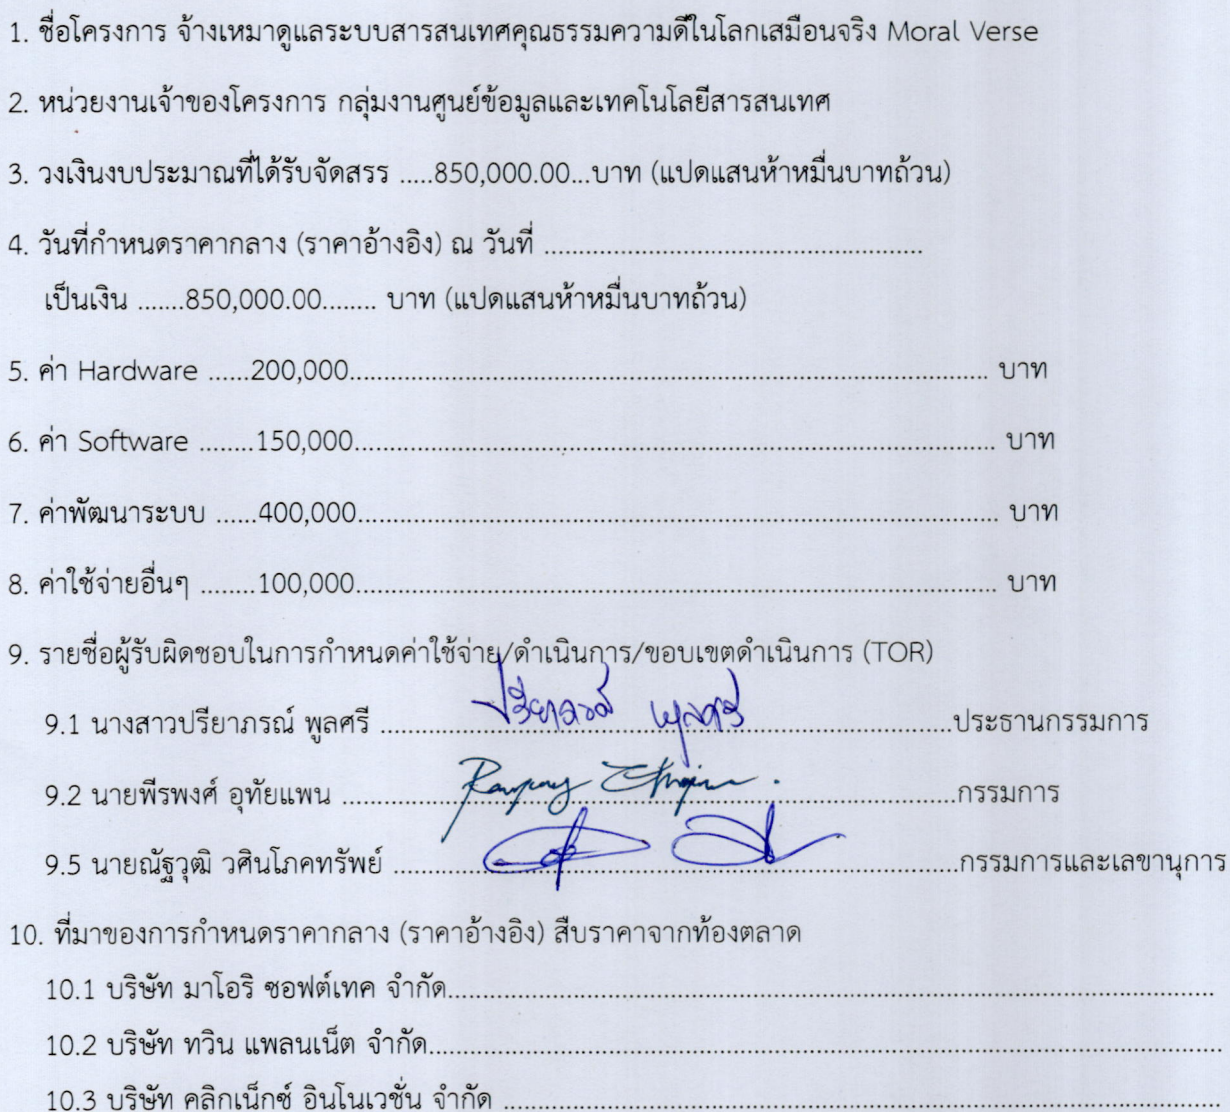 1. ชื่อโครงการ จ้างเหมาดูแลระบบสารสนเทศคุณธรรมความดีในโลกเสมือนจริง Moral Verse
2. หน่วยงานเจ้าของโครงการ กลุ่มงานศูนย์ข้อมูลและเทคโนโลยีสารสนเทศ
3. วงเงินงบประมาณที่ได้รับจัดสรร .....850,000.00...บาท (แปดแสนห้าหมื่นบาทถ้วน)
4. วันที่กำหนดราคากลาง (ราคาอ้างอิง) ณ วันที่ ........................................................
เป็นเงิน .......850,000.00........ บาท (แปดแสนห้าหมื่นบาทถ้วน)
5. ค่า Hardware ......200,000............................................................................................... บาท
6. ค่า Software ........150,000............................................................................................... บาท
7. ค่าพัฒนาระบบ ......400,000............................................................................................... บาท
8. ค่าใช้จ่ายอื่นๆ ........100,000............................................................................................... บาท
9. รายชื่อผู้รับผิดชอบในการกำหนดค่าใช้จ่าย/ดำเนินการ/ขอบเขตดำเนินการ (TOR)
9.1 นางสาวปรียาภรณ์ พูลศรี ........ปรียาภรณ์ พูลศรี........ประธานกรรมการ
9.2 นายพีรพงศ์ อุทัยแพน ................................................กรรมการ
9.5 นายณัฐวุฒิ วศินโภคทรัพย์ ................................................กรรมการและเลขานุการ
10. ที่มาของการกำหนดราคากลาง (ราคาอ้างอิง) สืบราคาจากท้องตลาด
10.1 บริษัท มาโอริ ซอฟต์เทค จำกัด................................................................................
10.2 บริษัท ทวิน แพลนเน็ต จำกัด................................................................................
10.3 บริษัท คลิกเน็กซ์ อินโนเวชั่น จำกัด ................................................................................